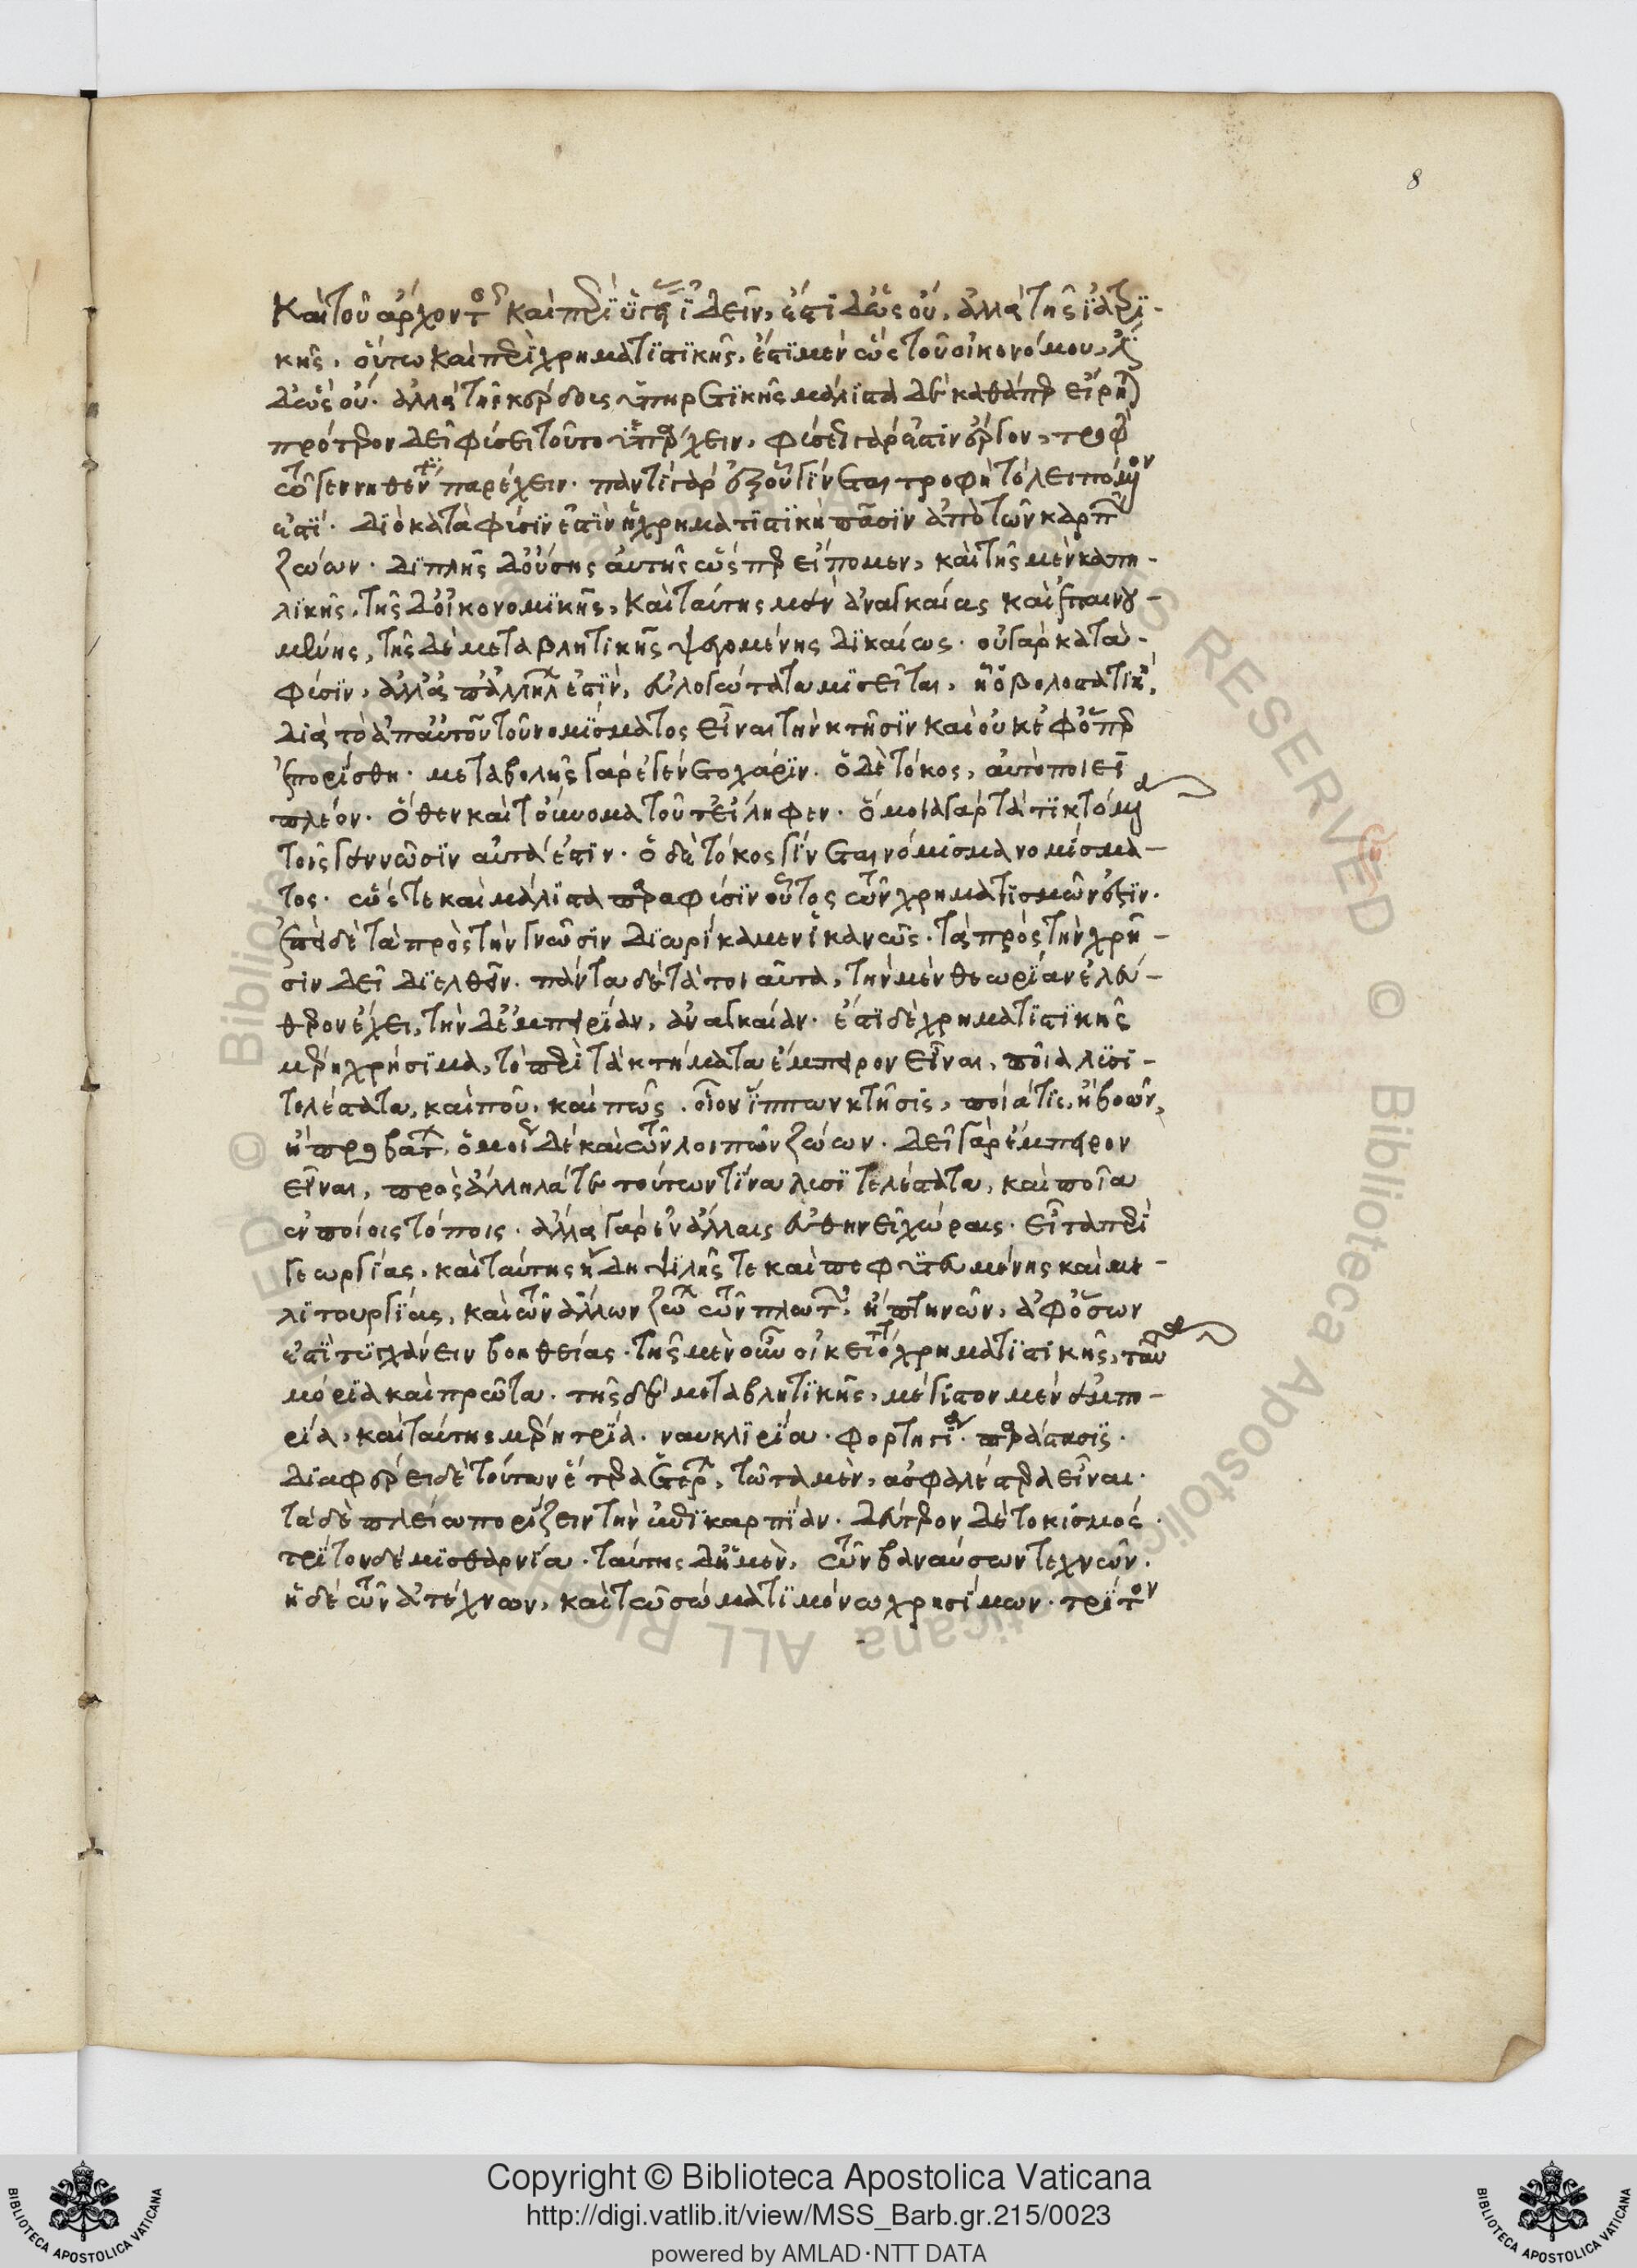 8
καὶ τοῦ ἄρχοντος καὶ περὶ ὑγείας ἰδεῖν, ἔστι δ' ὡς οὔ, ἀλλὰ τῆς ἰατρι-
κῆς. οὕτω καὶ περὶ χρηματιστικῆς, ἔστι μὲν ὡς τοῦ οἰκονόμου, ἔστι
δ' ὡς οὔ. ἀλλὰ τῆς ὑπηρετικῆς μάλιστα δὲ καθάπερ εἴρηται
πρότερον δεῖ φύσει τοῦτο ὑπάρχειν. φύσεως γάρ ἐστιν ἔργον, τροφὴν
τῷ γεννηθέντι παρέχειν. παντὶ γὰρ ἐξ οὗ γίνεται τροφὴ τὸ λειπόμενον
ἐστί. διὸ κατὰ φύσιν ἐστὶν ἡ χρηματιστικὴ πᾶσιν ἀπὸ τῶν καρπῶν
ζώων. διπλῆς δ' οὔσης αὐτῆς ὥσπερ εἴπομεν, καὶ τῆς μὲν καπη-
λικῆς, τῆς δ' οἰκονομικῆς, καὶ ταύτης μὲν ἀναγκαίας καὶ ἐπαινου-
μένης, τῆς δὲ μεταβλητικῆς ψεγομένης δικαίως. οὐ γὰρ κατὰ
φύσιν, ἀλλ' ἀπ' ἀλλήλων ἐστίν, εὐλογώτατα μισεῖται, ἡ ὀβολοστατική,
διὰ τὸ ἀπ' αὐτοῦ τοῦ νομίσματος εἶναι τὴν κτῆσιν καὶ οὐκ ἐφ' ὅπερ
ἐπορίσθη. μεταβολῆς γὰρ ἐγένετο χάριν. ὁ δὲ τόκος, αὐτὸ ποιεῖ
πλέον. ὅθεν καὶ τοὔνομα τοῦτ' εἴληφεν. ὅμοια γὰρ τὰ τικτόμενα
τοῖς γεννῶσιν αὐτά ἐστιν. ὁ δὲ τόκος γίνεται νόμισμα νομίσμα-
τος. ὥστε καὶ μάλιστα παρὰ φύσιν οὗτος τῶν χρηματισμῶν ἐστιν.
ἐπεὶ δὲ τὰ πρὸς τὴν γνῶσιν διωρίκαμεν ἱκανῶς. τὰ πρὸς τὴν χρῆ-
σιν δεῖ διελθεῖν. πάντα δὲ τὰ τοιαῦτα, τὴν μὲν θεωρίαν ἐλεύ-
θερον ἔχει, τὴν δ' ἐμπειρίαν, ἀναγκαίαν. ἔστι δὲ χρηματιστικῆς
μέρη χρήσιμα, τὸ περὶ τὰ κτήματα ἔμπειρον εἶναι, ποῖα λυσι-
τελέστατα, καὶ ποῦ, καὶ πῶς. οἷον ἵππων κτῆσις, ποία τις, ἢ βοῶν,
ἢ προβάτων, ὁμοίως δὲ καὶ τῶν λοιπῶν ζώων. δεῖ γὰρ ἔμπειρον
εἶναι, πρὸς ἄλληλά τε τούτων τίνα λυσιτελέστατα, καὶ ποῖα
ἐν ποίοις τόποις. ἄλλα γὰρ ἐν ἄλλαις εὐθηνεῖ χώραις. εἶτα περὶ
γεωργίας, καὶ ταύτης ἤδη ψιλῆς τε καὶ πεφυτευμένης καὶ με-
λιτουργίας, καὶ τῶν ἄλλων ζώων τῶν πλωτῶν, ἢ πτηνῶν, ἀφ' ὅσων
ἔστι τυγχάνειν βοηθείας. τῆς μὲν οὖν οἰκειοτάτης χρηματιστικῆς, ταῦτα
μόρια καὶ πρῶτα. τῆς δὲ μεταβλητικῆς, μέγιστον μὲν ἐμπο-
ρία, καὶ ταύτης μέρη τρία. ναυκληρία. φορτηγία. παράστασις.
διαφέρει δὲ τούτων ἕτερα ἑτέρων, τῷ τὰ μὲν, ἀσφαλέστερα εἶναι.
τὰ δὲ πλείω πορίζειν τὴν ἐπικαρπίαν. δεύτερον δὲ τοκισμός.
τρίτον δὲ μισθαρνία. ταύτης δ' ἡ μὲν, τῶν βαναύσων τεχνῶν.
ἡ δὲ τῶν ἀτέχνων, καὶ τῷ σώματι μόνῳ χρησίμων. τρίτον
Copyright © Biblioteca Apostolica Vaticana
http://digi.vatlib.it/view/MSS_Barb.gr.215/0023
powered by AMLAD·NTT DATA